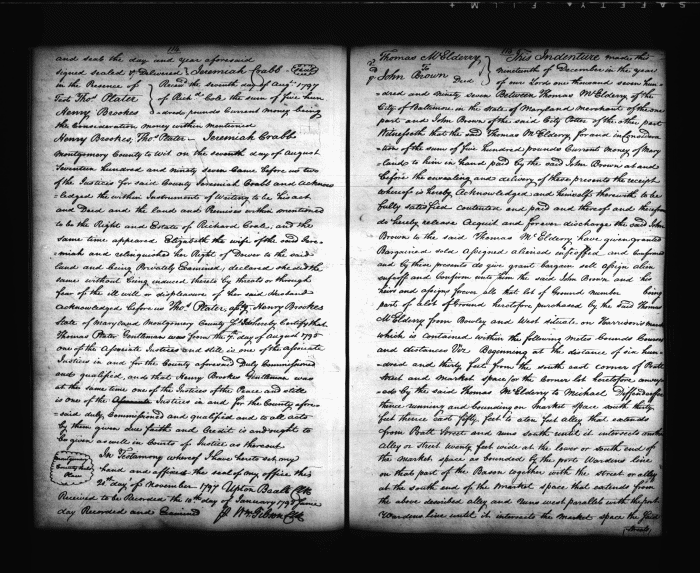 and seal the day and year aforesaid
Signed Sealed & Delivered Jeremiah Crabb Seal
in the Presence of Reced the seventh day of Augt 1797
Test Thos Plater of Richd Cole the sum of five hun
Henry Brookes dred pounds Current money being
the Consideration money within mentioned
Henry Brookes, Thos Plater Jeremiah Crabb
Montgomery County to wit on the seventh day of August
Seventeen hundred and ninety seven Came before us two
of the Justices for said County Jeremiah Crabb and acknow
ledged the within Instrument of Writing to be his act
and Deed and the land and Premises within mentioned
to be the Right and Estate of Richard Cole, and the
same time appeared Elizabeth the wife of the said Jere
miah and relinquished her Right of Dower to the said
land and being Privately Examined, declared she did the
same without being induced thereto by threats or through
fear of the ill will or displeasure of her said Husband
acknowledged before us Thos Plater, Henry Brookes
State of Maryland Montgomery County I hereby Certify that
Thomas Plater Gentleman was from the 7 day of August 1795
one of the Justices and still is one of the
Justices in and for the County aforesaid Duly Commissioned
and qualified, and that Henry Brookes Gentleman was
at the same time one of the Justices of the Peace and still
is one of the Justices in and for the County afore
said duly Commissioned and qualified and to all acts
by them given due faith and Credit is and ought to
be given as well in Courts of Justice as thereout
In Testimony whereof I have hereto set my
hand and affixed the seal of my office this
21st day of November 1797 Upton Beall Clk
Received to be Recorded the 10th day of January 1798 same
day Recorded and Examined
Wm Gibson Clk
Thomas McElderry
to
John Brown Deed
This Indenture made this
nineteenth of December in the year
of our Lord one thousand seven hun
dred and Ninety seven Between Thomas McElderry of the
City of Baltimore in the state of Maryland Merchant of the one
part and John Brown of the said City Potter of the other part
Witnesseth that the said Thomas McElderry for and in Considera
tion of the sum of five hundred pounds Current Money of Mary
land to him in hand paid by the said John Brown at and
before the ensealing and delivery of these presents the receipt
whereof is hereby Acknowledged and himself therewith to be
fully satisfied contented and paid and thereof and therefrom
do hereby release Acquit and forever discharge the said John
Brown to the said Thomas McElderry have given granted
Bargained sold aliened enfeoffed and Confirmed
and by these presents do give grant bargain sell alien
enfeoff and Confirm unto him the said John Brown and his
heirs and assigns forever all that lot of Ground number being
part of a lot of Ground heretofore purchased by the said Thomas
McElderry from Bowley and West situate on Harrison's marsh
which is contained within the following Metes bounds Courses
and distances Viz Beginning at the distance of six hun
dred and thirty feet from the south east corner of Pratt
street and Market space for the Corner lot heretofore convey
ed by the said Thomas McElderry to Michael Diffenderffer
thence running and bounding on Market space south thirty
feet thence east fifty feet to a ten feet alley that extends
from Pratt street and runs south until it intersects another
alley or street twenty feet wide at the lower or south end of
the market space as bounded by the port Wardens line
on that part of the Bason together with the street or alley
at the south end of the Market space that extends from
the above described alley and runs west parallel with the port
Wardens line until it intersects the Market space the said